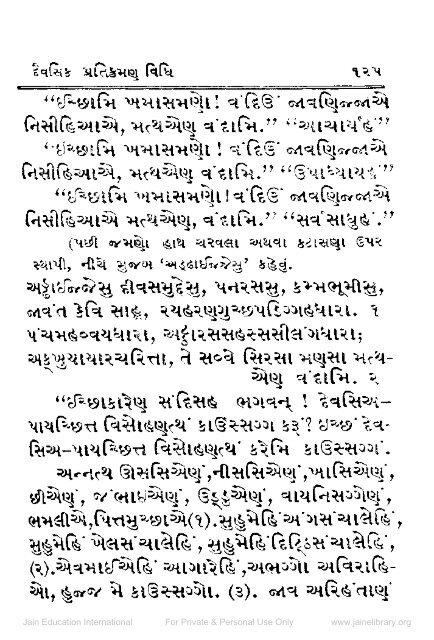 દૈવસિક પ્રતિક્રમણ વિધિ ૧૨૫
“ઇચ્છામિ ખમાસમણો! વંદિઉં જાવણિજ્જાએ
નિસીહિઆએ, મત્થએણ વંદામિ.” “આચાર્યહં”
“ઇચ્છામિ ખમાસમણો ! વંદિઉં જાવણિજ્જાએ
નિસીહિઆએ, મત્થએણ વંદામિ.” “ઉપાધ્યાયહં”
“ઇચ્છામિ ખમાસમણો! વંદિઉં જાવણિજ્જાએ
નિસીહિઆએ મત્થએણ, વંદામિ.” “સર્વસાધુહં.”
(પછી જમણો હાથ ચરવલા અથવા કટાસણા ઉપર
સ્થાપી, નીચે મુજબ ‘અડ્ઢાઈજ્જેસુ’ કહેવું.
અડ્ઢાઈજ્જેસુ દીવસમુદ્દેસુ, પનરસસુ, કમ્મભૂમીસુ,
જાવંત કેવિ સાહૂ, રયહરણગુચ્છપડિગ્ગહધારા. ૧
પંચમહવ્વયધારા, અટ્ઠારસસહસ્સસીલંગધારા;
અક્ખુયાયારચરિત્તા, તે સવ્વે સિરસા મણસા મત્થ-
એણ વંદામિ. ૨
“ઇચ્છાકારેણ સંદિસહ ભગવન્ ! દેવસિઅ-
પાયચ્છિત્ત વિસોહણત્થં કાઉસ્સગ્ગ કરૂં? ઇચ્છં દેવ-
સિઅ-પાયચ્છિત્ત વિસોહણત્થં કરેમિ કાઉસ્સગ્ગં.
અન્નત્થ ઊસસિએણં,નીસસિએણં,ખાસિએણં,
છીએણં, જંભાઇએણં, ઉડ્ડુએણં, વાયનિસગ્ગેણં,
ભમલીએ,પિત્તમુચ્છાએ(૧).સુહુમેહિં અંગસંચાલેહિં,
સુહુમેહિં ખેલસંચાલેહિં, સુહુમેહિં દિટ્ઠિસંચાલેહિં,
(૨).એવમાઈએહિં આગારેહિં,અભગ્ગો અવિરાહિ-
ઓ, હુજ્જ મે કાઉસ્સગ્ગો. (૩). જાવ અરિહંતાણં
Jain Education International For Private & Personal Use Only www.jainelibrary.org